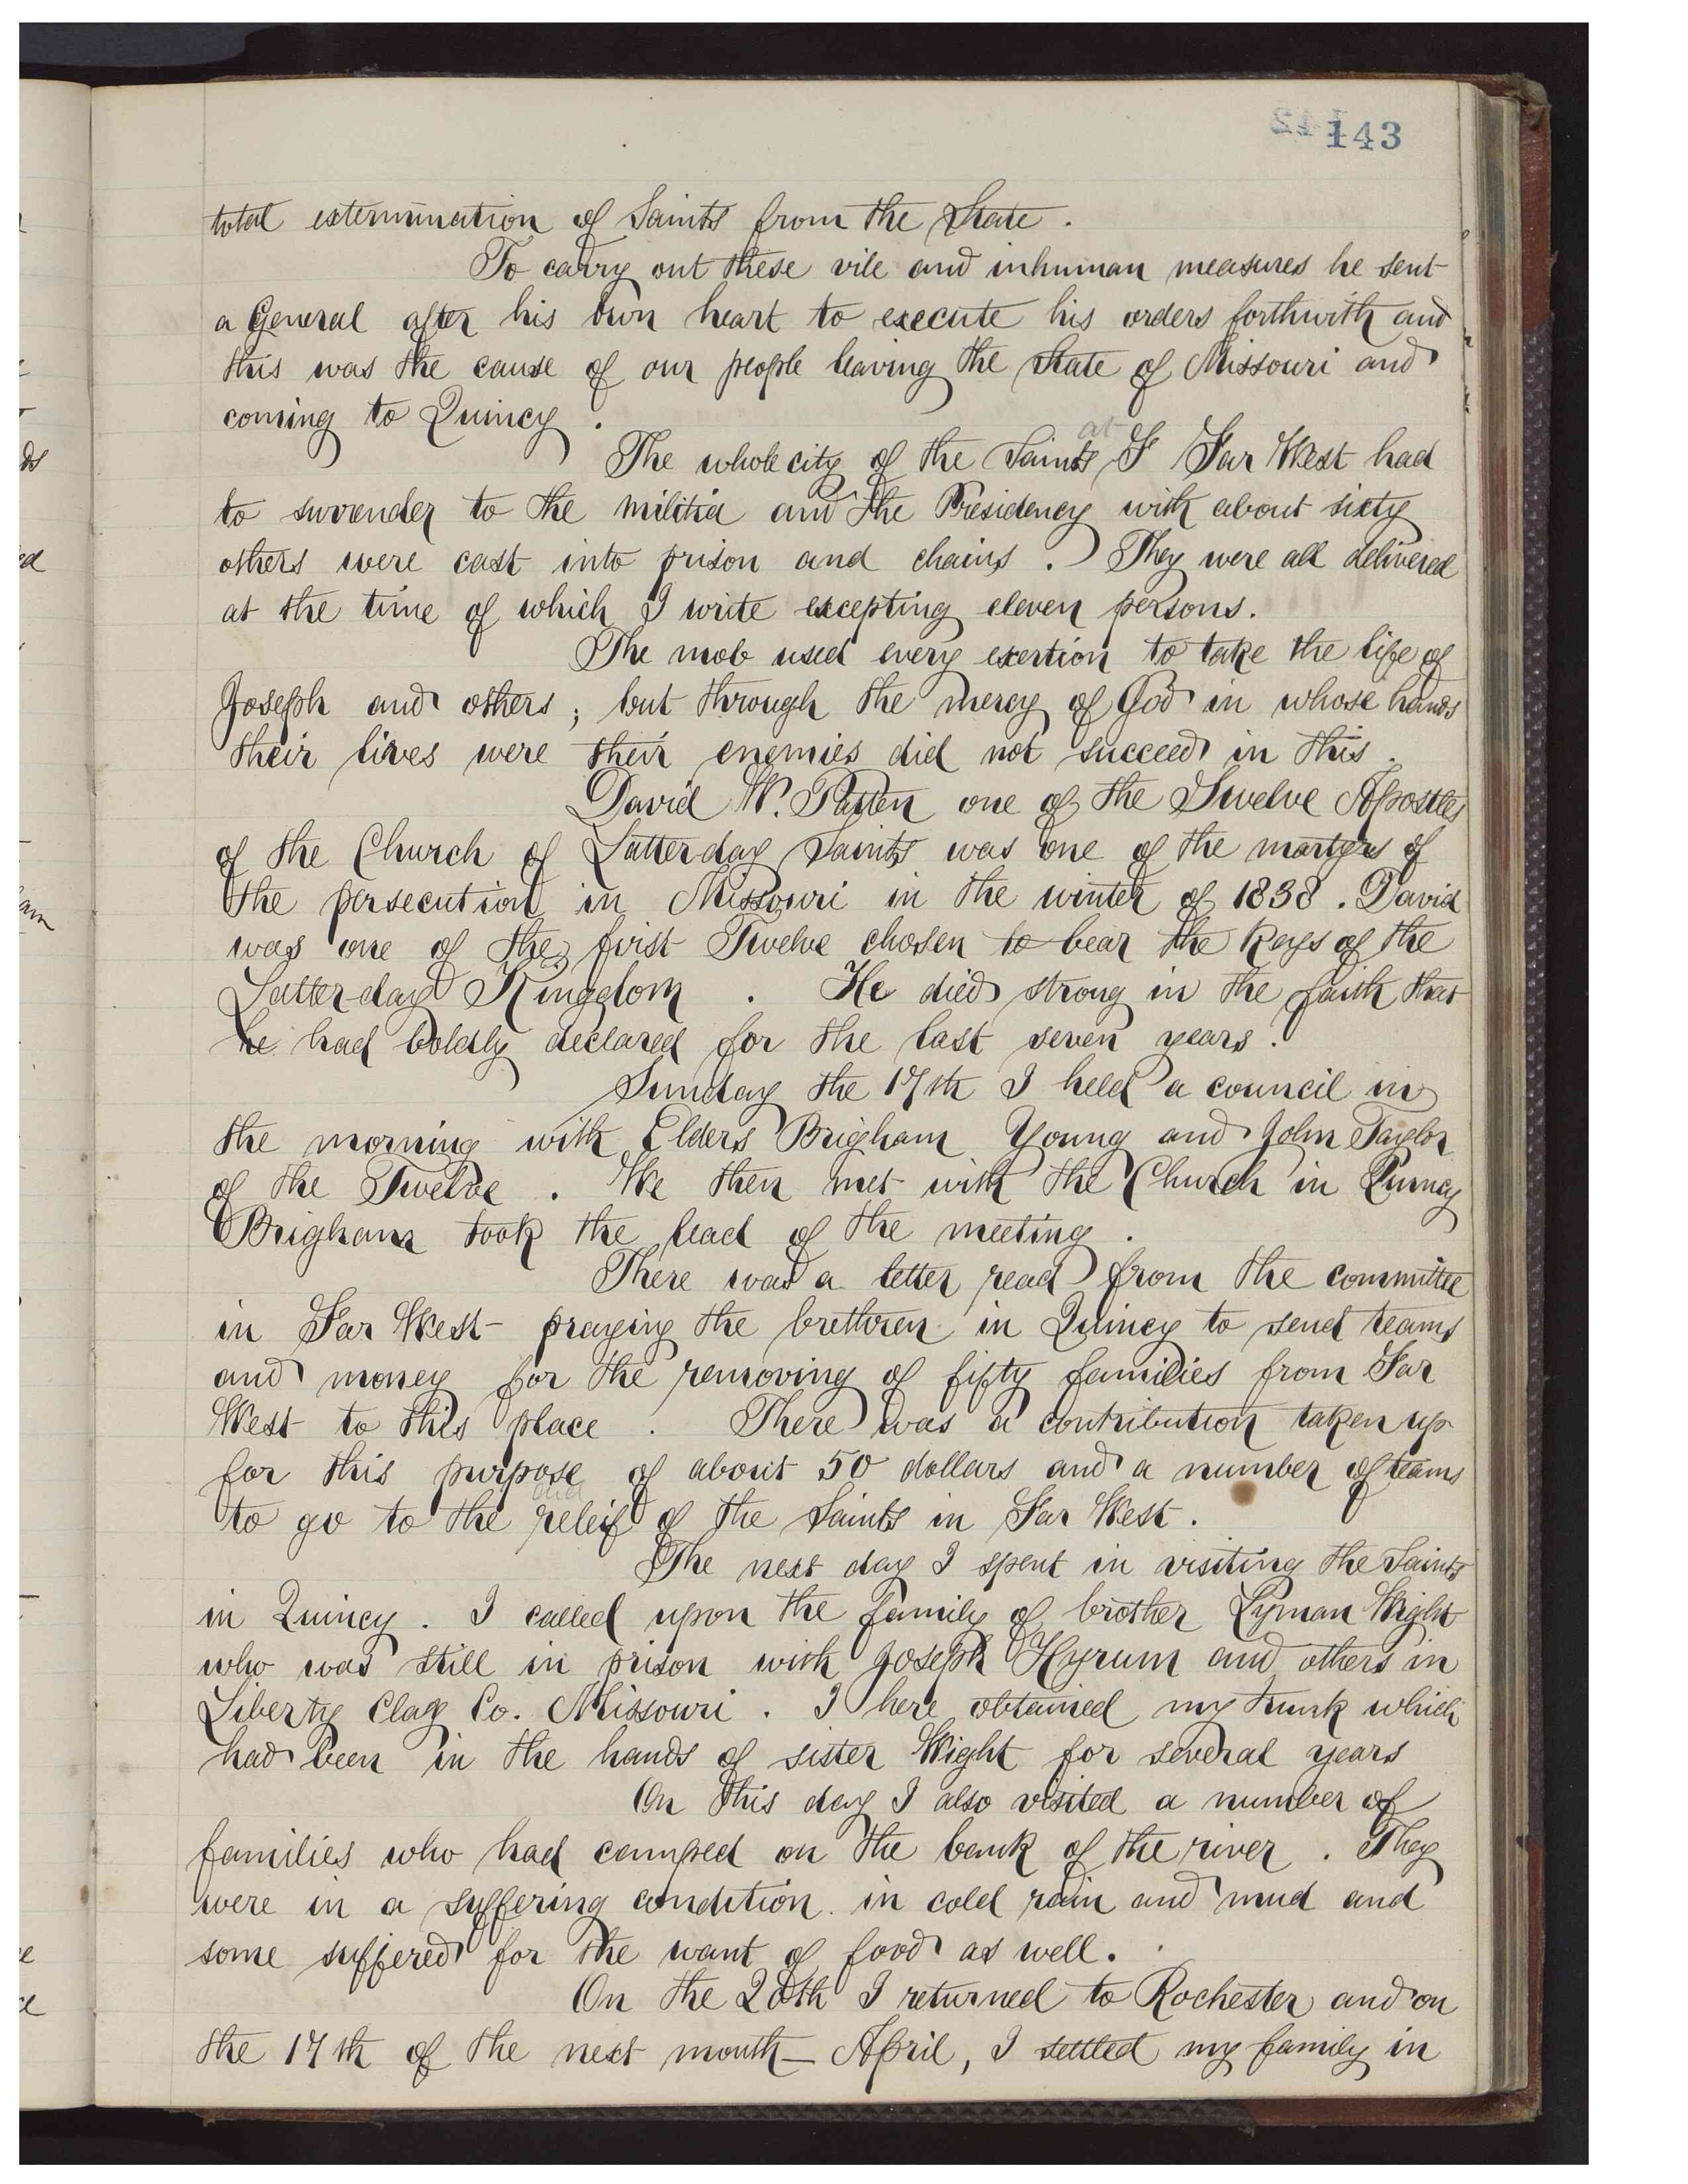 143
total extermination of Saints from the State .
To carry out these vile and inhuman measures he sent
a General after his own heart to execute his orders forthwith and
this was the cause of our people leaving the State of Missouri and
coming to Quincy .
at
The whole city of the Saints F Far West had
to surrender to the militia and the Presidency with about sixty
others were cast into prison and chains . They were all delivered
at the time of which I write excepting eleven persons.
The mob used every exertion to take the life of
Joseph and others ; but through the mercy of God in whose hands
their lives were their enemies did not succeed in this .
David W. Patten one of the Twelve Apostles
of the Church of Latter-day Saints was one of the martyrs of
the persecution in Missouri in the winter of 1838 . David
was one of the first Twelve chosen to bear the keys of the
Latter-day Kingdom . He died strong in the faith that
he had boldly declared for the last seven years .
Sunday the 17th I held a council in
the morning with Elders Brigham Young and John Taylor
of the Twelve . We then met with the Church in Quincy
Brigham took the lead of the meeting .
There was a letter read from the committee
in Far West - praying the brethren in Quincy to send teams
and money for the removing of fifty families from Far
West to this place . There was a contribution taken up
for this purpose of about 50 dollars and a number of teams
aid
to go to the releif of the Saints in Far West .
The next day I spent in visiting the Saints
in Quincy . I called upon the family of brother Lyman Wight
who was still in prison with Joseph Hyrum and others in
Liberty Clay Co. Missouri . I here obtained my trunk which
had been in the hands of sister Wight for several years
On this day I also visited a number of
families who had camped on the bank of the river . They
were in a suffering condition in cold rain and mud and
some suffered for the want of food as well .
On the 20th I returned to Rochester and on
the 17th of the next month - April, I settled my family in